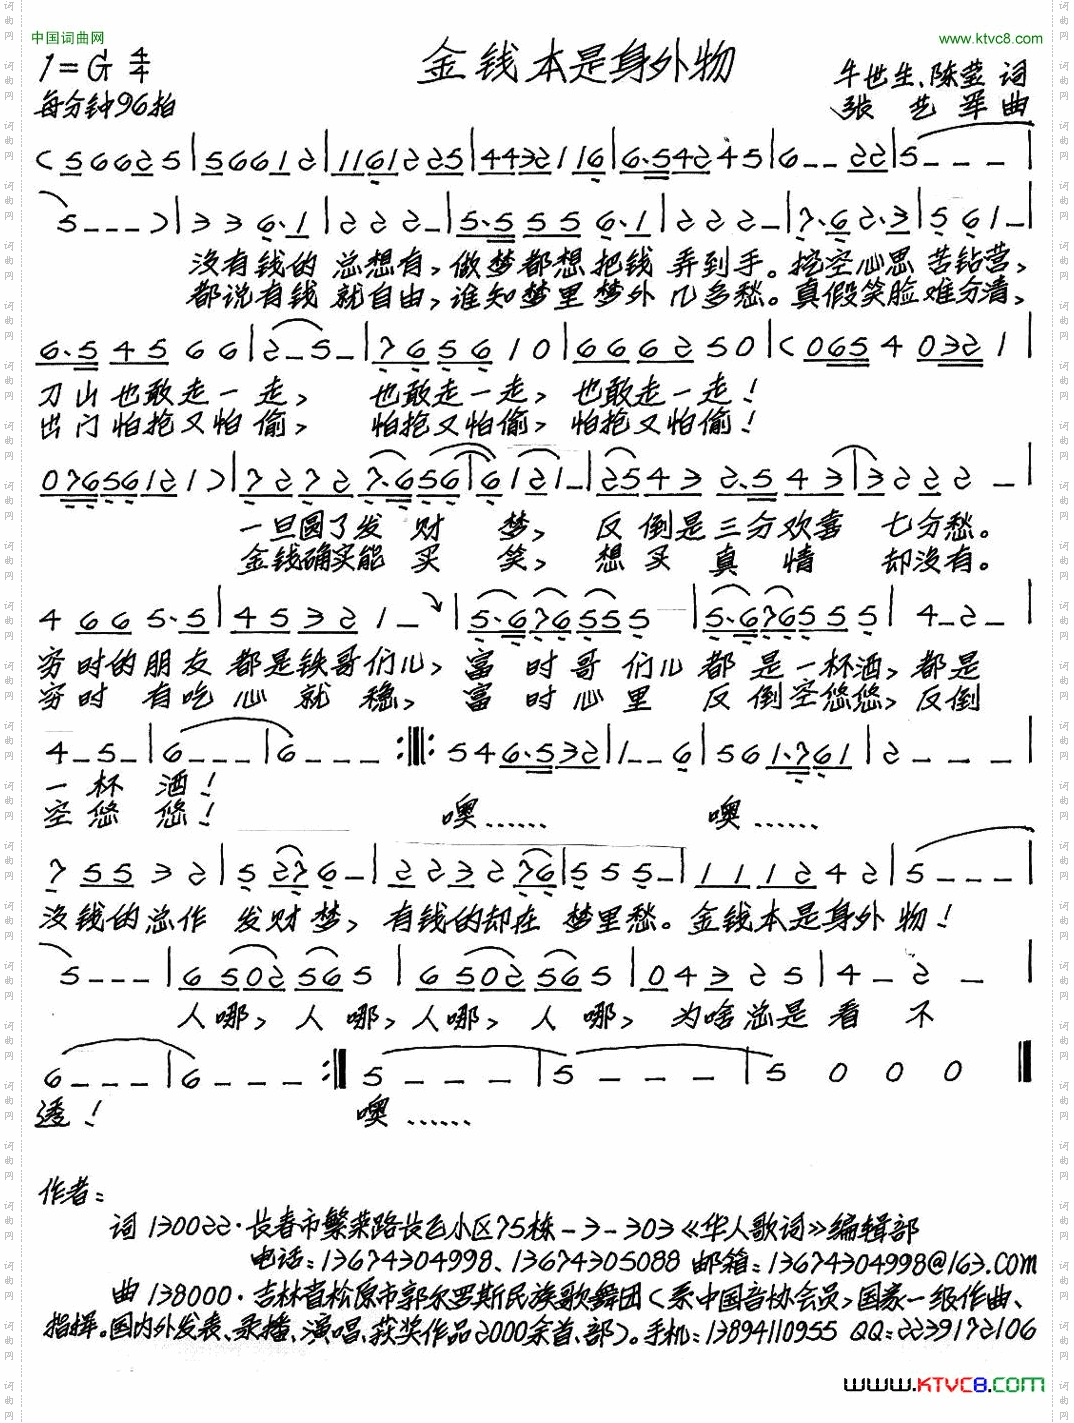 中国词曲网
www.ktvc8.com
金钱本是身外物
1=G 4/4
每分钟96拍
牛世生、陈莹 词
张艺军 曲
(56625|56612|1161225|4432116|6·54245|6--22|5---|
5---)|336·1|222-|5·5556·1|222-|7·62·3|561-|
没有钱的总想有，做梦都想把钱弄到手。挖空心思苦钻营，
都说有钱就自由，谁知梦里梦外几多愁。真假笑脸难分清，
6·54566|2-5-|765610|666250|(0654 0321|
刀山也敢走一走，也敢走一走，也敢走一走！
出门怕抢又怕偷，怕抢又怕偷，怕抢又怕偷！
07656121)|72727·656|6121-|25432·543|3222-|
一旦圆了发财梦，反倒是三分欢喜七分愁。
金钱确实能买笑，想买真情却没有。
4665·5|45321-|5·676555|5·676555|4-2-|
穷时的朋友都是铁哥们儿，富时哥们儿都是一杯酒，都是
穷时有吃心就稳，富时心里反倒空悠悠，反倒
4-5-|6---|6---:‖:546·532|1--6|561·761|2---|
一杯酒！
空悠悠！ 噢…… 噢……
75532|5276-|223276|555-|11242|5---|
没钱的总作发财梦，有钱的却在梦里愁。金钱本是身外物！
5---|6502565|6502565|04325|4-2-|
人哪，人哪，人哪，人哪，为啥总是看不
6---|6---:‖5---|5---|5000‖
透！ 噢……
作者：
词 130022·长春市繁荣路长飞小区75栋-3-303《华人歌词》编辑部
电话：13674304998、13674305088 邮箱：13674304998@163.com
曲 138000·吉林省松原市郭尔罗斯民族歌舞团（系中国音协会员，国家一级作曲、
指挥。国内外发表、录播、演唱、获奖作品2000余首、部）。手机：13894110955 QQ：2239172106
www.KTVC8.com